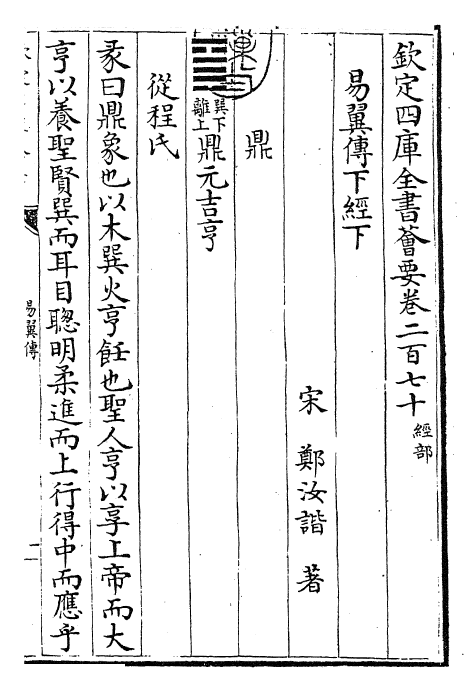 欽定四庫全書薈要卷二百七十 經部
易翼傳下經下
宋 鄭汝諧 著
鼎
巽下離上 鼎元吉亨
從程氏
彖曰鼎象也以木巽火亨飪也聖人亨以享上帝而大
亨以養聖賢巽而耳目聰明柔進而上行得中而應乎
易翼傳
一